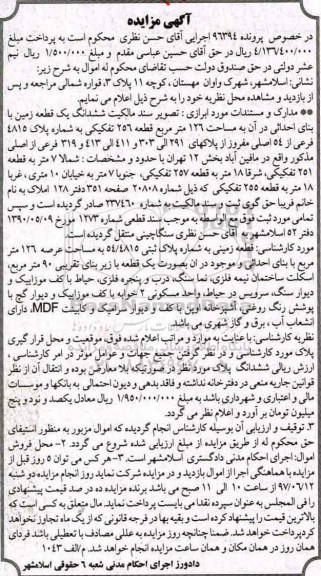 آگهی مزایده
در خصوص پرونده ۹۶۳۹۴ اجرایی آقای حسن نظری محکوم است به پرداخت مبلغ
۴/۱۳۶/۴۰۰/۰۰۰ ریال در حق آقای حسین عباسی مقدم و مبلغ ۱/۵۰۰/۰۰۰ ریال نیم
عشر دولتی در حق صندوق دولت حسب تقاضای محکوم له اموال به شرح زیر:
نشانی: اسلامشهر، شهرک واوان مهستان، کوچه ۱۱ پلاک ۳، قواره شمالی مراجعه و پس
از بازدید و مشاهده محل نظریه خود را به شرح ذیل اعلام می نمایم.
** مدارک و مستندات مورد ابرازی: تصویر سند مالکیت ششدانگ یک قطعه زمین با
بنای احداثی در آن به مساحت ۱۲۶ متر مربع قطعه ۲۵۶ تفکیکی به شماره پلاک ۴۸۱۵
فرعی از ۵۴ اصلی مفروز از پلاکهای ۲۹۱ الی ۳۰۳ و ۴۱۱ الی ۴۱۳ و ۳۱۹ فرعی از اصلی
مذکور واقع در مافین آباد بخش ۱۲ تهران با حدود و مشخصات: شمالا ۷ متر به قطعه
۲۵۱ تفکیکی، شرقا ۱۸ متر به قطعه ۲۵۷ تفکیکی، جنوبا ۷ متر به خیابان ۱۰ متری، غربا
۱۸ متر به قطعه ۲۵۵ تفکیکی که ذیل شماره ۲۰۸۰۸ صفحه ۳۵۱ دفتر ۱۲۸ املاک به نام
خانم فریبا حق گوی ثبت و سند مالکیت به شماره ۲۳۷۴۶۰ صادر گردیده است و سپس
تمامی مورد ثبت فوق مع الواسطه به موجب سند قطعی شماره ۱۲۷۳ مورخ ۱۳۹۰/۰۵/۰۹
دفتر ۵۲ اسلامشهر به آقای حسن نظری سنگاچینی منتقل گردیده است.
مورد کارشناسی: قطعه زمینی به شماره پلاک ثبتی ۵۴/۴۸۱۵ به مساحت عرصه ۱۲۶ متر
مربع با بنای احداثی و موجود در آن بصورت یک قطعه با زیر بنای تقریبی ۹۰ متر مربع،
اسکلت ساختمان نیمه فلزی، نما سنگ، درب و پنجره فلزی، حیاط با کف موزاییک و
دیوار سنگ، سرویس در حیاط واحد مسکونی ۲ خوابه با کف موزاییک و دیوار گچ با
پوشش رنگ روغنی، آشپزخانه اوپن با کف و دیوار سرامیک و کابینت MDF، دارای
انشعاب آب، برق و گاز شهری می باشد.
نظریه کارشناسی: با عنایت به موارد و مراتب اعلام شده فوق، موقعیت و محل قرار گیری
پلاک مورد کارشناسی و در نظر گرفتن جمیع جهات و عوامل موثر در امر کارشناسی،
ارزش ریالی ششدانگ پلاک مورد نظر در صورتیکه بلا معارض بوده و انتقال آن از نظر
قوانین جاریه منعی در دفترخانه نداشته و فاقد بدهی و دیون احتمالی به بانکها و موسسات
مالی و اعتباری و شهرداری باشد به مبلغ ۱/۹۵۰/۰۰۰/۰۰۰ ریال معادل یکصد و نود و پنج
میلیون تومان برآورد و اعلام نظر می گردد.
۳. توقیف و ارزیابی آن بوسیله کارشناس انجام گردیده که اموال مزبور به منظور استیفای
حق محکوم له از طریق مزایده از مبلغ ارزیابی شده شروع می گردد. ۲- محل فروش
اموال: اجرای احکام مدنی دادگستری اسلامشهر است. ۳- هر کس می توان ۵ روز قبل از
مزایده با هماهنگی اجرا از اموال بازدید و در مزایده شرکت نماید روز انجام مزایده دو شنبه
۹۷/۰۶/۱۲ از ساعت ۱۰ الی ۱۱ صبح می باشد برنده مزایده ده در صد قیمت پیشنهادی
را فی المجلس به عنوان سپرده نقدا می بایست پرداخت نماید. مال متعلق به کسی است که
بالاترین قیمت را پیشنهاد کرده است و بقیه بها در فرجه قانونی که از یک ماه تجاوز نخواهد
کرد پرداخت خواهد شد. ضمنا چنانچه روز مزایده به عللی مصادف با تعطیلی باشد فردای
همان روز در همان مکان و همان ساعت مزایده انجام خواهد شد. م/الف ۱۰۴۳
دادورز اجرای احکام مدنی شعبه ۶ حقوقی اسلامشهر